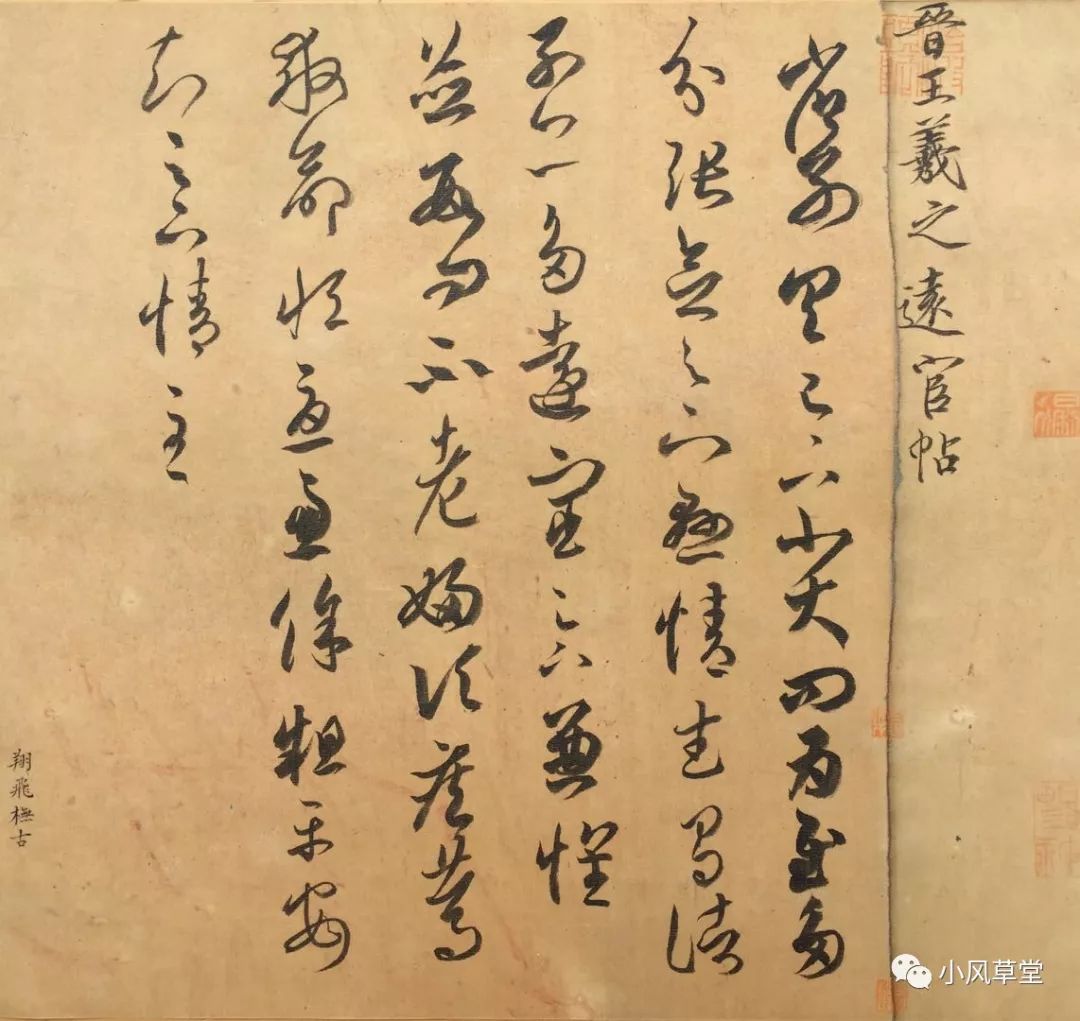 晉王羲之遠宦帖
省別具足下小大問為慰多
分張念足下懸情武昌諸
子亦多遠宦足下兼懷
並數問不老婦頃疾篤
救命恒憂慮餘粗平安
知足下情至
翔飛橅古
小风草堂